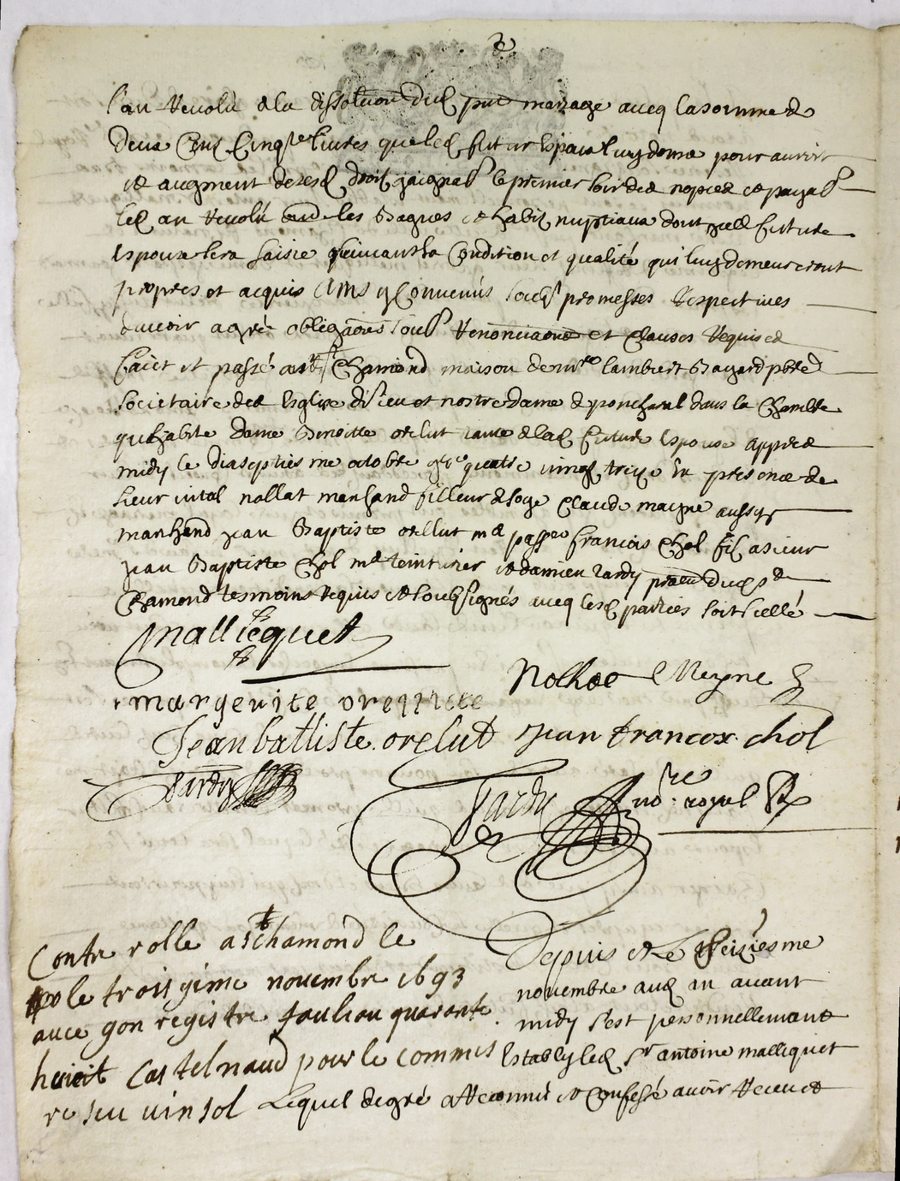 l'an Revolu a la dissolution dud pnt mariage avecq la somme de
deux Cens Cinqte livres que led futur espoux luy donne pour avoir
et augment de sesd droit gaignab le premier soir des nopces et payab
led an Revolu avec les Bagues et habit nuptiaux dont lad future
Espouse sera saisie suivant sa Condition et qualité qui luy demeureront
propres et acquis Ains q Convenus soubs promesses Respectives
d'avoir agré obligaons soub Renonciaons et clauses Requises
Faict et passé a st Chamond maison de mre lambert Bayard pbre
societaire des Eglise dud lieu et nostre dame de poncharal dans la Chambre
qu'habite dame Benoitte orelut tante de lad future Espouse appres
midy le dixseptiesme octobre g{re} quatre vingt treize En presence de
sieur vital nollat marchand filleur de soye Claude mayne aussy
marchand jean Baptiste orellut md passe francois Chol fils a sieur
jean Baptiste Chol md teinturier et damien tardy praen dud st
Chamond tesmoins requis et soubsignés avecq lesd parties soit sellé
Malliequet
margerite orellute Nolhac C Meyne
Jean battiste orelut Jean francox chol
Tardy Tardy nore royal
Contre rolle a st chamond le
le troisgime novembre 1693
avce gon registre fauliau quarante
huioit Castelnaud pour le commis
reseu vin sol
Depuis et Le treiziesme
novembre aud an avant
midy s'est personnellement
Estably led Sr antoine malliquet
Lequel de gré a Reconnu et Confessé avoir Receu de